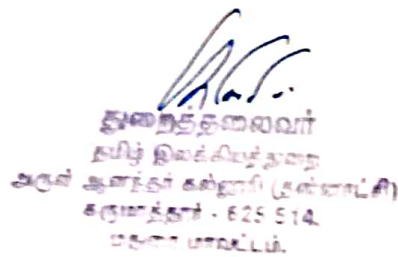 துறைத்தலைவர்
தமிழ் இலக்கியத்துறை
அருள் ஆனந்தர் கல்லூரி (தன்னாட்சி)
கருமாத்தூர் - 625 514.
மதுரை மாவட்டம்.